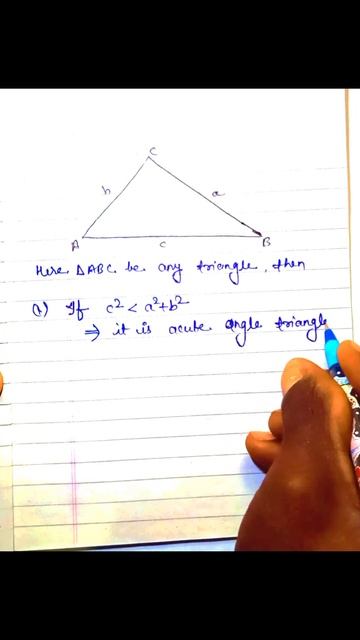 C
b
a
A
c
B
Here ΔABC be any triangle, then
(1) If c² < a²+b²
⇒ it is acute angle triangle